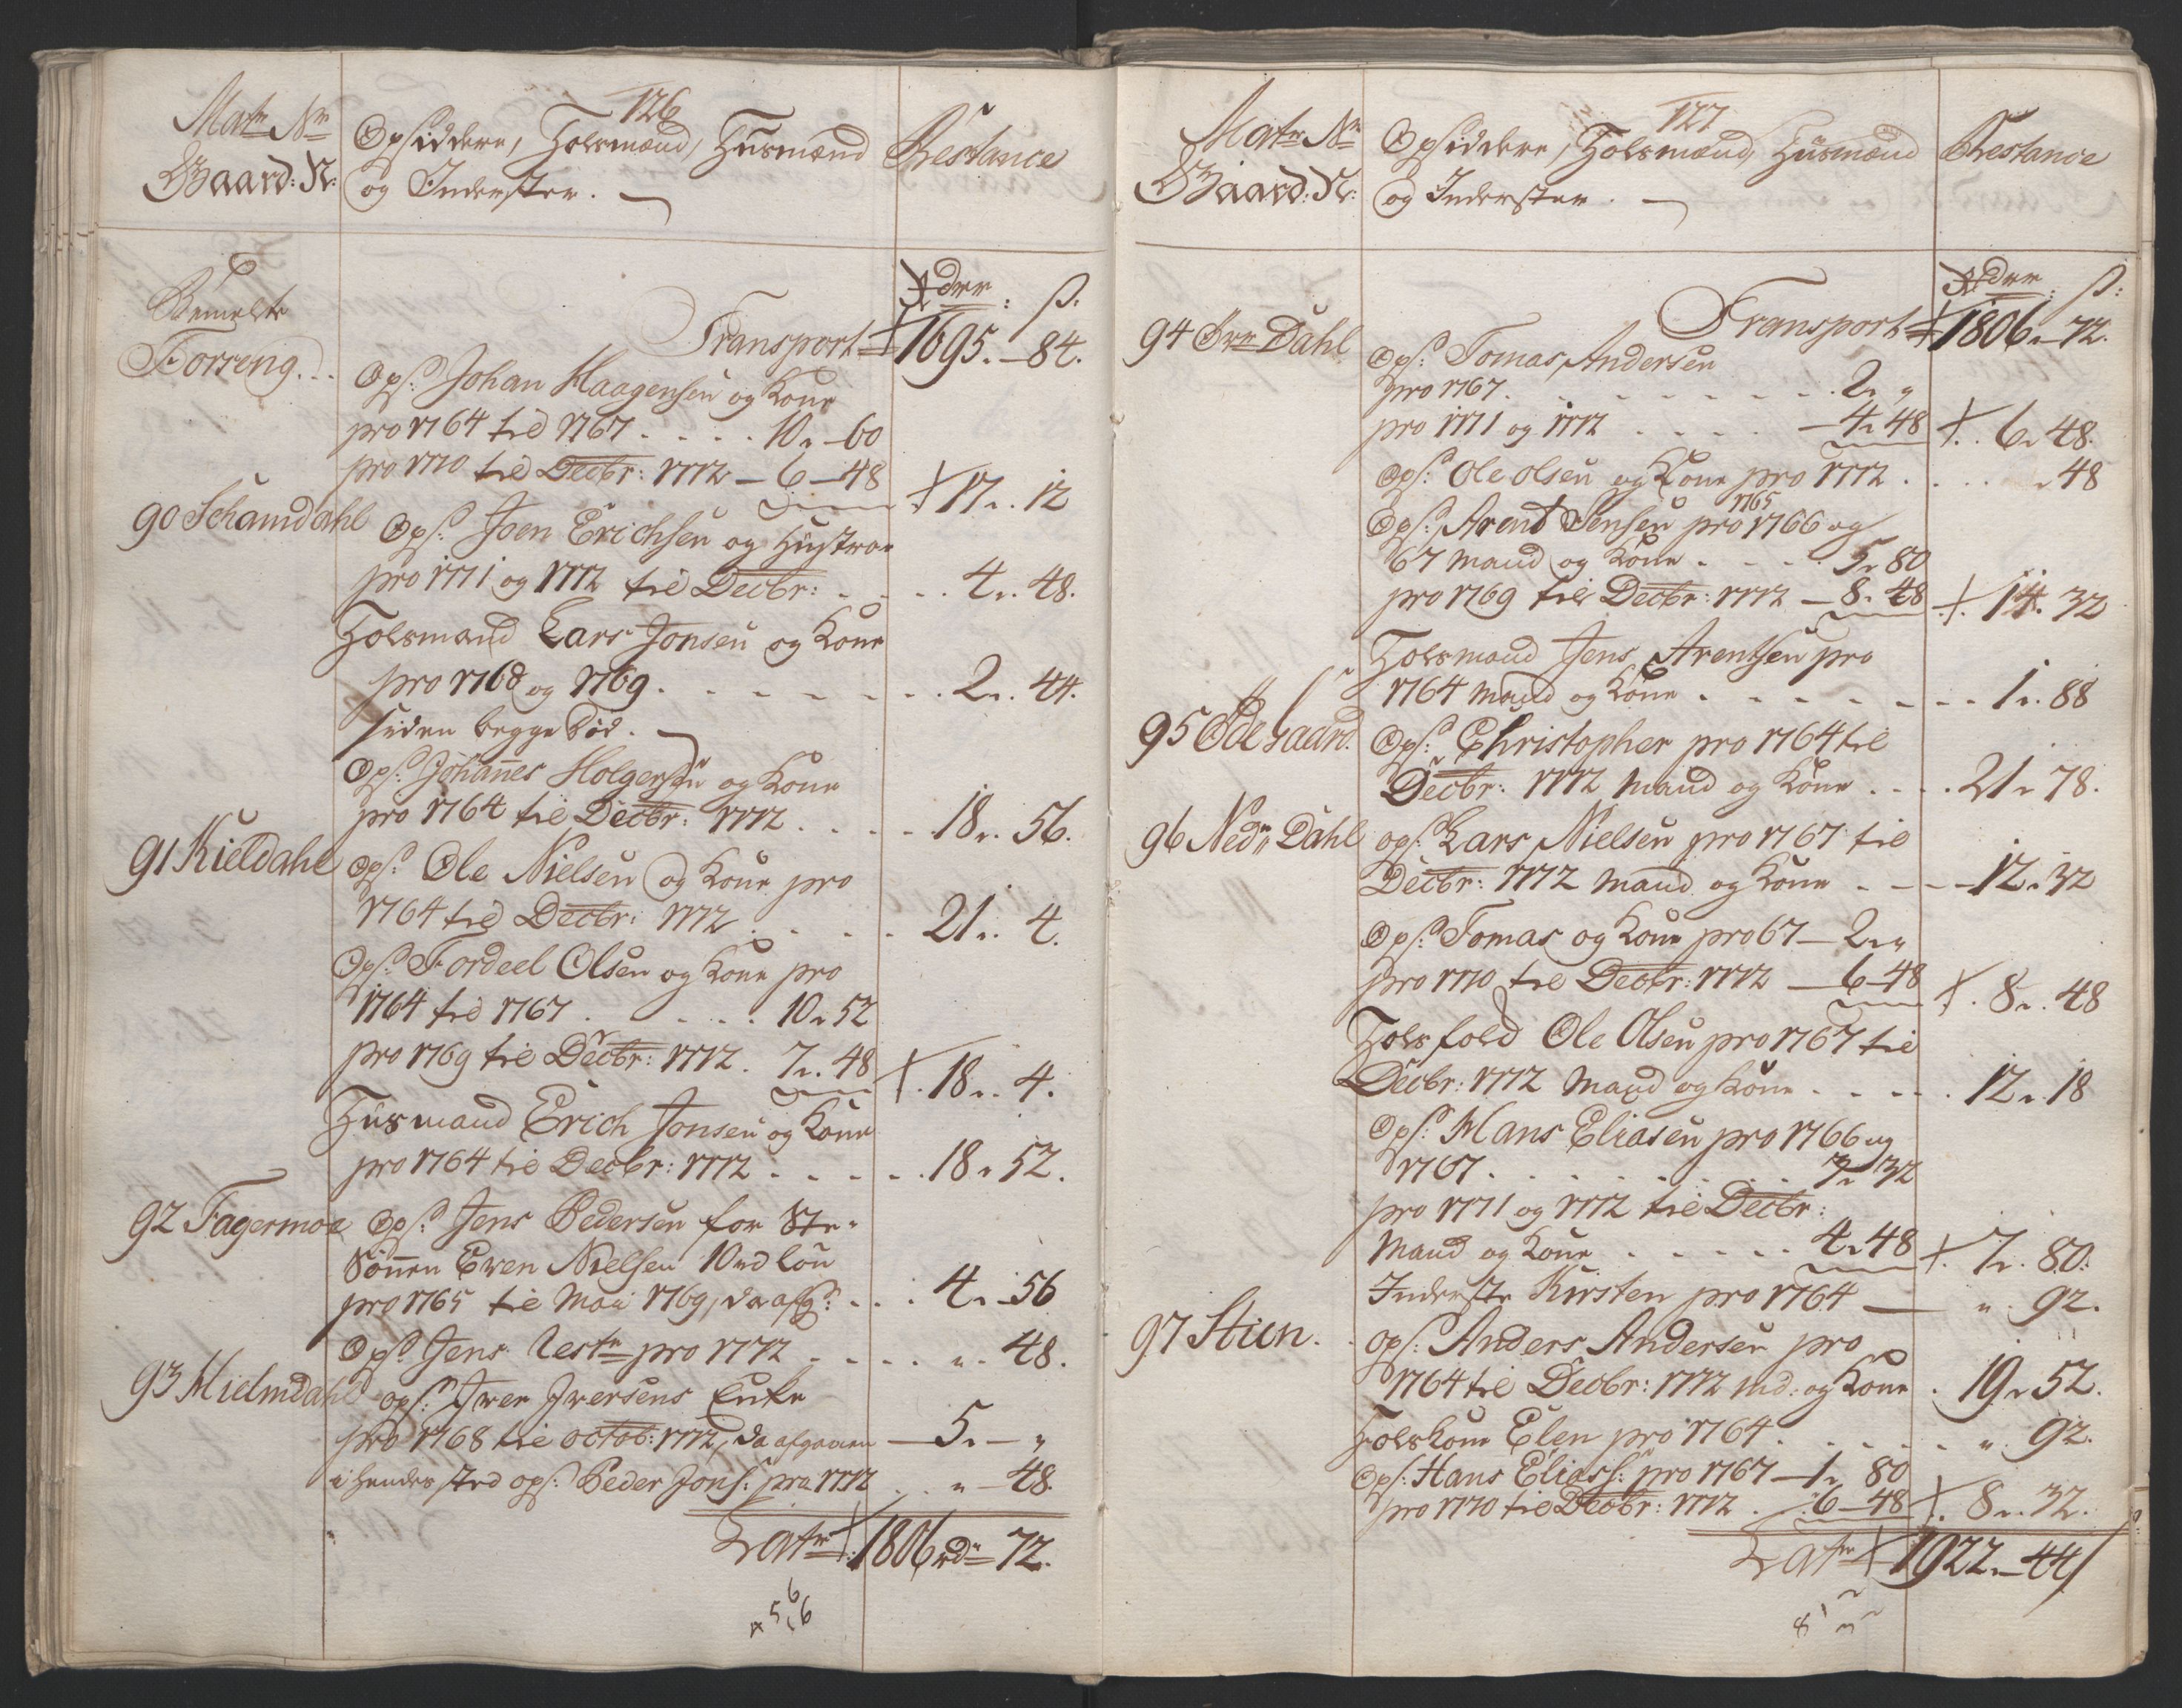 126
Matr Nr
Gaard: N:
Opsiddere, Folsmænd, Huusmænd
og Inderster.
Restance
Rdr: ß:
Bemelte
Forreng.
Transport 1695. 84.
Ops: Johan Haagensen og Kone
pro 1764 til 1767 . . . . 10. 60
pro 1770 til Decbr: 1772 — 6 — 48 17. 12
90 Schamdahl Ops: Joen Erichsen og Hustrue
pro 1771 og 1772 til Decbr: . . . . 4. 48.
Folsmand Lars Jonsen og Kone
pro 1768 og 1769 . . . . . . 2. 44.
siden begge død.
Ops: Johannes Holgersen og Kone
pro 1764 til Decbr: 1772 . . . . 18. 56.
91 Kieldahl Ops: Ole Nielsen og Kone pro
1764 til Decbr: 1772 . . . . 21. 4.
Ops: Fordeel Olsen og Kone pro
1764 til 1767 . . . . 10. 52
pro 1769 til Decbr: 1772. 7. 48 18. 4.
Huusmand Erich Jonsen og Kone
pro 1764 til Decbr: 1772 . . . . 18. 52.
92 Fagermoe Ops: Jens Pedersen for Ste-
Sønnen Even Nielsen
pro 1765 til Maii 1769, da afg: . . . 4. 56
Ops: Jens pro 1772 . . . . „. 48.
93 Hielmdahl ops: Iver Iversens Enke
pro 1768 til octob: 1772, da afgaaen — 5. — „
i hendes sted ops: Peder Jons: pro 1772 . . „ — 48.
Latr 1806 rd 72.
127
Matr Nr
Gaard: N:
Opsiddere, Folsmænd, Huusmænd
og Inderster.
Restance
Rdr: ß:
Transport 1806. 72.
94 Øvr Dahl
Ops: Tomas Andersen
pro 1767 . . . . . . . . 2. „
pro 1771 og 1772 . . . . — 4. 48 6. 48.
Ops: Ole Olsen og Kone pro 1772 . . . . 48
1765
Ops: Arent Jensen pro 1766 og
67 Mand og Kone . . . . 5. 80
pro 1769 til Decbr: 1772 — 8. 48 14. 32
Folsmand Jens Arentsen pro
1764 Mand og Kone . . . . . . . 1. 88
95 Øde gaard. Ops: Christopher pro 1764 til
Decbr: 1772 Mand og Kone . . . . 21. 78.
96 Nedr Dahl ops: Lars Nielsen pro 1767 til
Decbr: 1772 Mand og Kone . . . 12. 32
Ops: Tomas og Kone pro 67 — 2. „
pro 1770 til Decbr: 1772 — 6 — 48 8. 48
Folsfold Ole Olsen pro 1767 til
Decbr: 1772 Mand og Kone . . . . 12. 18
Ops: Hans Eliasen pro 1766 og
1767 . . . . . . . . 3. 32
pro 1771 og 1772 til Decbr:
Mand og Kone . . . . . 4. 48 7. 80.
Inderste Kirsten pro 1764 — „. 92.
97 Stien. ops: Anders Andersen pro
1764 til Decbr: 1772 Md: og Kone . 19. 52.
Folskone Elen pro 1764 . . . . . . „. 92.
Ops: Hans Eliass: pro 1767 — 1. 80
pro 1770 til Decbr: 1772 . . 6 — 48 8. 32.
Latr 1922. 44